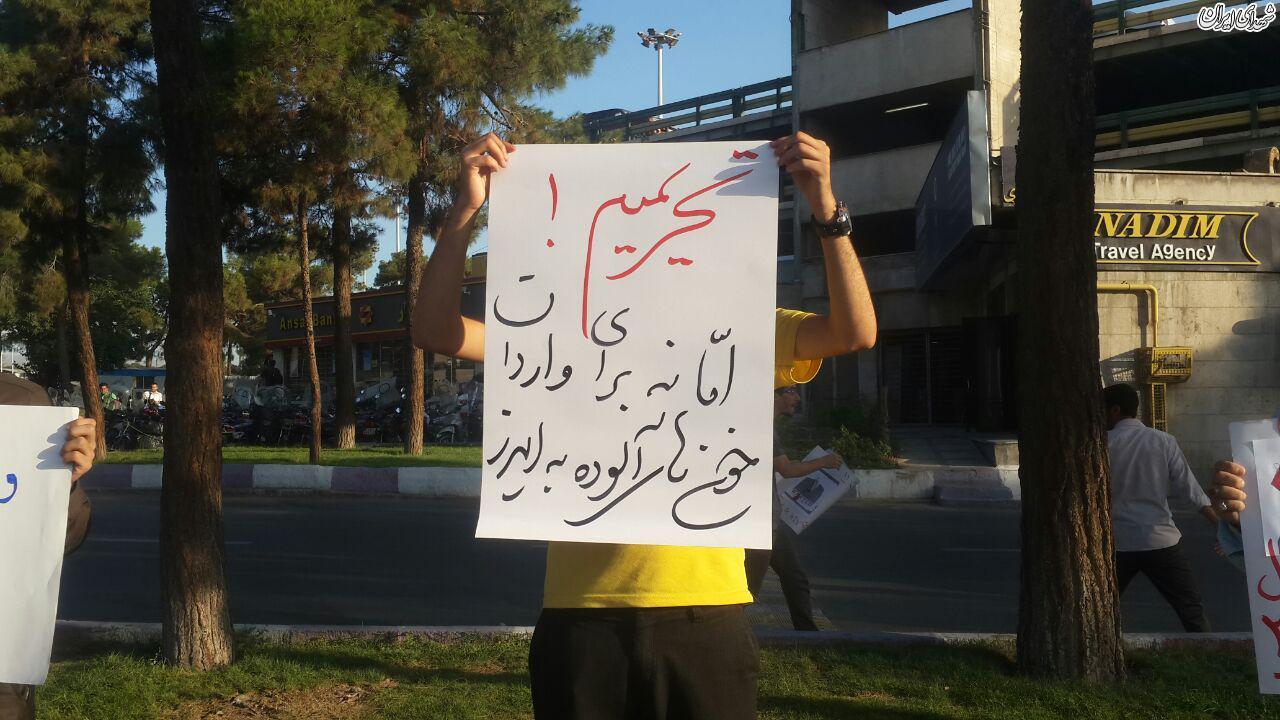 شهدای ایران
تحریمیم !
امّا نه برای واردات
خون های آلوده به ایدز
NADIM
Travel Agency
Ansar Ban
و